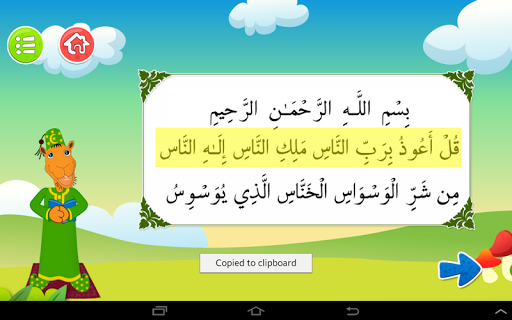 بِسْمِ اللَّـهِ الرَّحْمَـٰنِ الرَّحِيمِ
قُلْ أَعُوذُ بِرَبِّ النَّاسِ مَلِكِ النَّاسِ إِلَـٰهِ النَّاس
مِن شَرِّ الْوَسْوَاسِ الْخَنَّاسِ الَّذِي يُوَسْوِسُ
Copied to clipboard